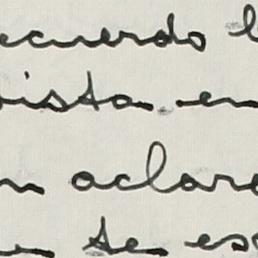 ecuerdo l
vista en
n aclara
n te es